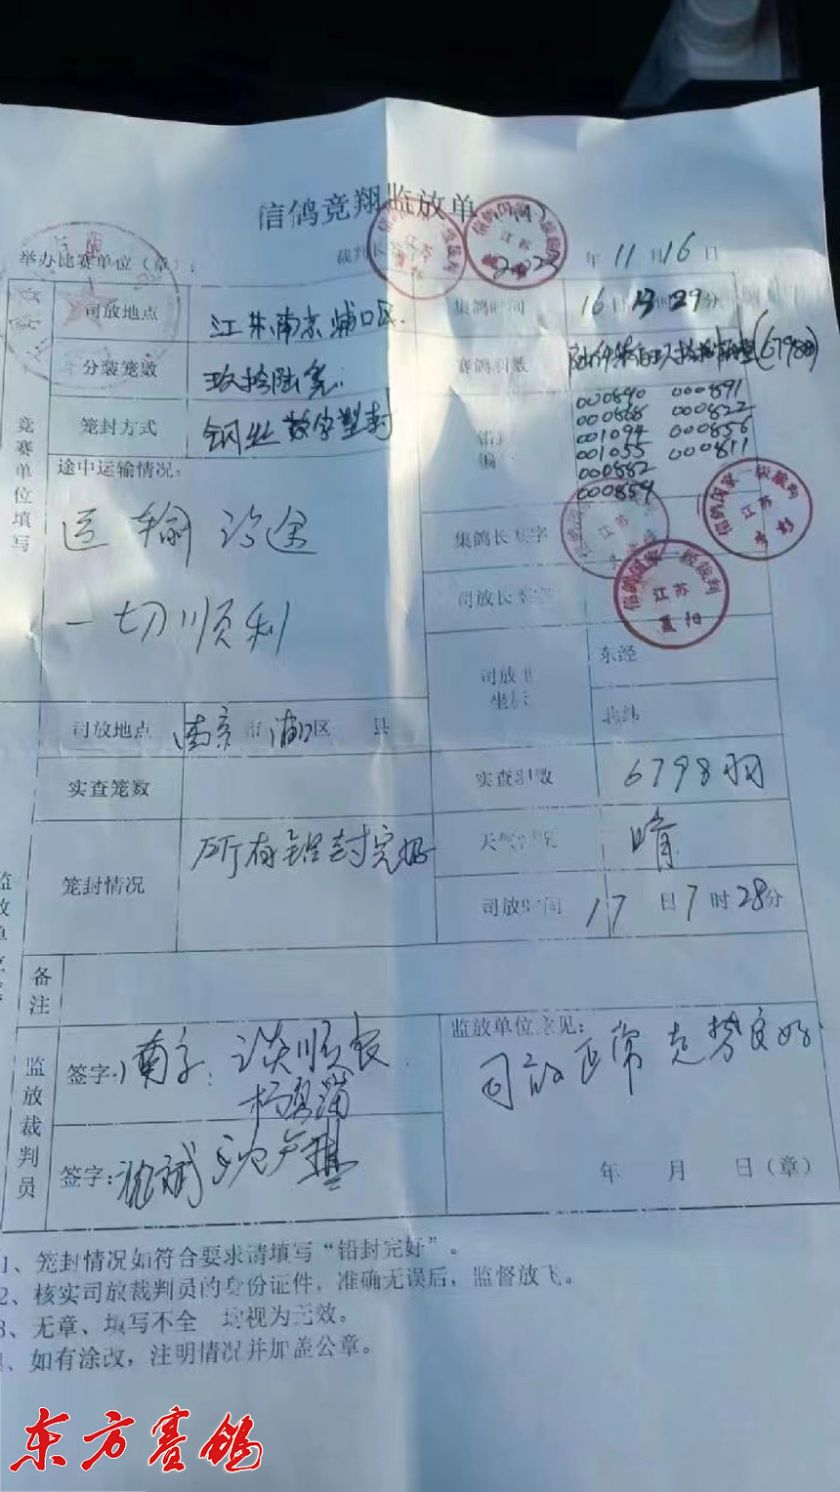 信鸽竞翔监放单
举办比赛单位（章）：
裁判长
2023 年 11 月 16 日
司放地点 江苏南京浦口区
集鸽时间 16日 时29分
分装笼数 玖拾陆笼
赛鸽羽数 (6798羽)
笼封方式 钢丝数字塑封
000840 000891
000868 000822
001094 000856
001055 000811
000882
000854
竞赛单位填写
途中运输情况：
运输沿途
一切顺利
集鸽长 字
司放长
信鸽国家一级裁判 江苏
司放地 坐标 东经
北纬
司放地点 南京市浦口区 县
实查笼数
实查羽数 6798羽
笼封情况 所有铅封完好
天气情况 晴
司放时间 17日7时28分
备注
监放裁判员
签字：南京：谈顺
签字：
监放单位意见：
司放正常 良好
年 月 日（章）
1、笼封情况如符合要求请填写“铅封完好”。
2、核实司放裁判员的身份证件，准确无误后，监督放飞。
3、无章、填写不全 均视为无效。
、如有涂改，注明情况并加盖公章。
东方赛鸽